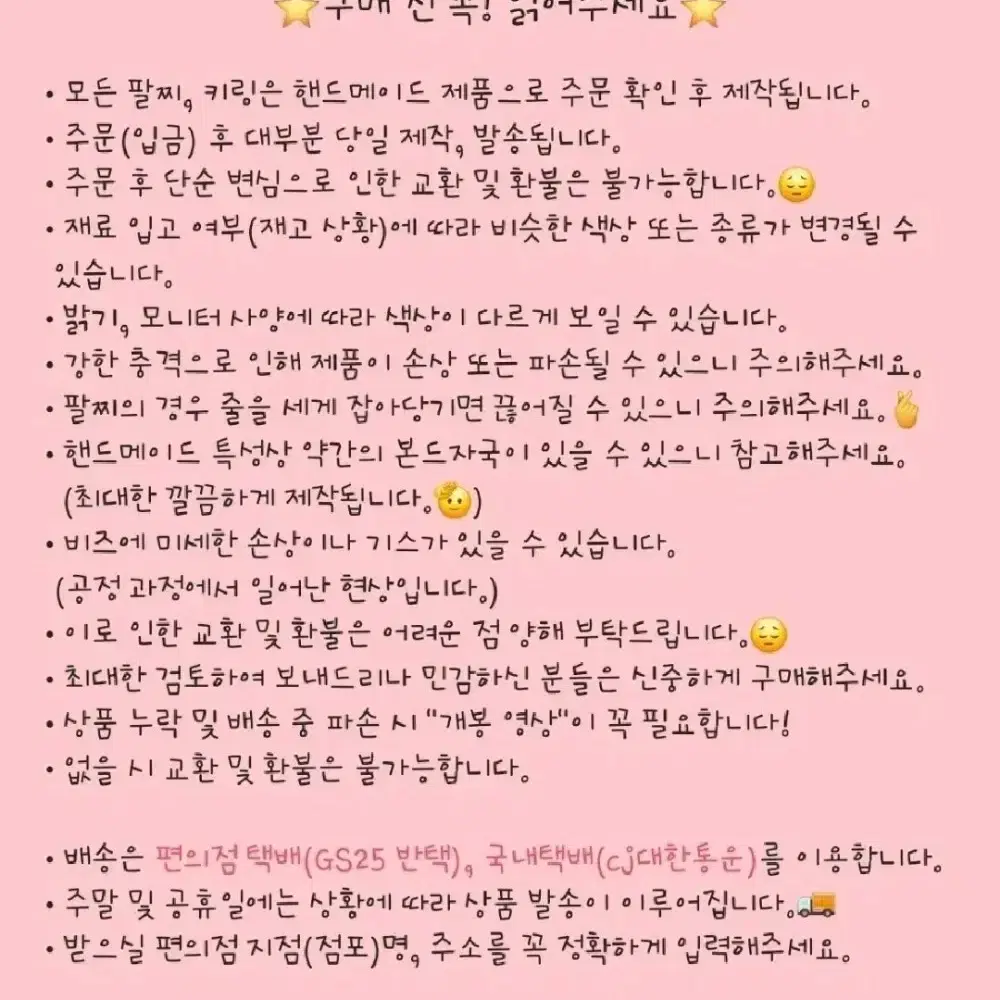 ⭐구매 전 꼭! 읽어주세요⭐
• 모든 팔찌, 키링은 핸드메이드 제품으로 주문 확인 후 제작됩니다.
• 주문(입금) 후 대부분 당일 제작, 발송됩니다.
• 주문 후 단순 변심으로 인한 교환 및 환불은 불가능합니다.😔
• 재료 입고 여부(재고 상황)에 따라 비슷한 색상 또는 종류가 변경될 수
있습니다.
• 밝기, 모니터 사양에 따라 색상이 다르게 보일 수 있습니다.
• 강한 충격으로 인해 제품이 손상 또는 파손될 수 있으니 주의해주세요.
• 팔찌의 경우 줄을 세게 잡아당기면 끊어질 수 있으니 주의해주세요.🫰
• 핸드메이드 특성상 약간의 본드자국이 있을 수 있으니 참고해주세요.
(최대한 깔끔하게 제작됩니다.🫡)
• 비즈에 미세한 손상이나 기스가 있을 수 있습니다.
(공정 과정에서 일어난 현상입니다.)
• 이로 인한 교환 및 환불은 어려운 점 양해 부탁드립니다.😔
• 최대한 검토하여 보내드리나 민감하신 분들은 신중하게 구매해주세요.
• 상품 누락 및 배송 중 파손 시 "개봉 영상"이 꼭 필요합니다!
• 없을 시 교환 및 환불은 불가능합니다.
• 배송은 편의점택배(GS25 반택), 국내택배(cj대한통운)를 이용합니다.
• 주말 및 공휴일에는 상황에 따라 상품 발송이 이루어집니다.🚚
• 받으실 편의점 지점(점포)명, 주소를 꼭 정확하게 입력해주세요.